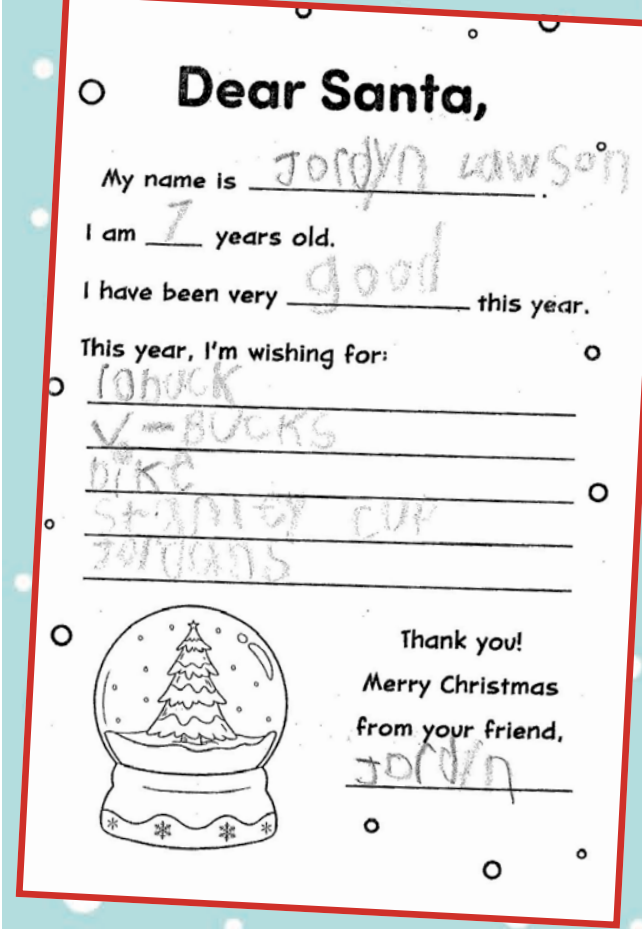 Dear Santa,
My name is Jordyn Lawson.
I am 7 years old.
I have been very good this year.
This year, I'm wishing for:
robuck
V-BUCKS
bike
stanley cup
Jordans
Thank you!
Merry Christmas
from your friend,
Jordyn